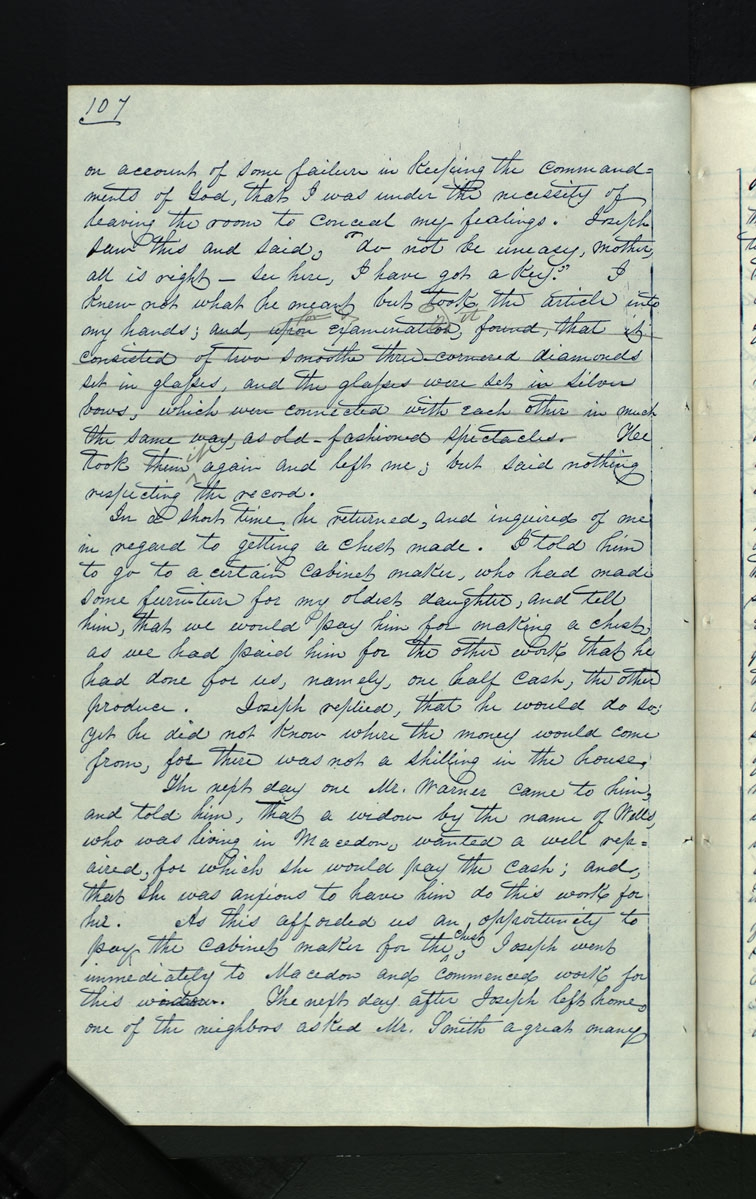 107
on account of some failure in keeping the command=
ments of God, that I was under the necessity of
leaving the room to conceal my fealings. Joseph
saw this and said, "do not be uneasy, mother,
all is right — see here, I have got a key." I
knew not what he meant but took the article into
my hands; and, upon examination, found, that it
consisted of two smoothe three-cornered diamonds
set in glasses, and the glasses were set in silver
bows, which were connected with each other in much
the same way, as old-fashioned spectacles. Hee
took them it again and left me; but said nothing
respecting the record.
In a short time he returned, and inquired of me
in regard to getting a chest made. I told him
to go to a certain cabinet maker, who had made
some furniture for my oldest daughter, and tell
him, that we would pay him for making a chest,
as we had paid him for the other work that he
had done for us, namely, one half cash, the other
produce. Joseph replied, that he would do so;
yet he did not know where the money would come
from, for there was not a shilling in the house.
The next day one Mr. Warner came to him,
and told him, that a widow by the name of Wells,
who was living in Macedon, wanted a well rep=
aired, for which she would pay the cash; and,
that she was anxious to have him do this work for
her. As this afforded us an opportunity to
pay the cabinet maker for the chest, Joseph went
immediately to Macedon and commenced work for
this widow. The next day after Joseph left home,
one of the neighbors asked Mr. Smith a great many